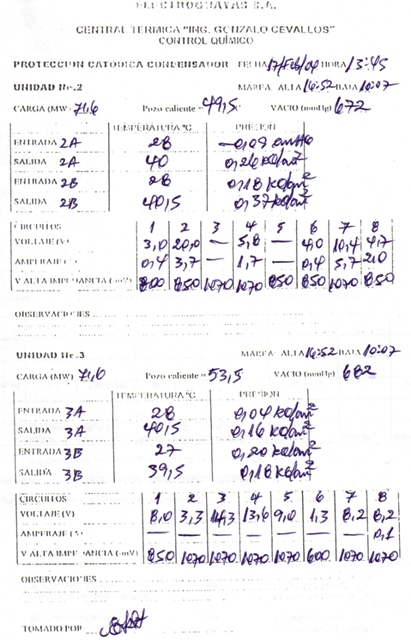 ELECTROGUAYAS S.A.
CENTRAL TERMICA "ING. GONZALO CEVALLOS"
CONTROL QUÍMICO
PROTECCION CATODICA CONDENSADOR FECHA 17/Feb/04 HORA 13:45
UNIDAD No.2 MAREA ALTA 16:52 BAJA 10:07
CARGA (MW) 71,6 Pozo caliente = 49,5 VACIO (mmHg) 672
TEMPERATURA °C PRESION
ENTRADA 2A 28 -0,09 cmHg
SALIDA 2A 40 0,26 kg/cm²
ENTRADA 2B 28 0,18 kg/cm²
SALIDA 2B 40,5 0,37 kg/cm²
CIRCUITOS 1 2 3 4 5 6 7 8
VOLTAJE (V) 3,0 20,0 — 5,8 — 4,0 10,4 4,7
AMPERAJE (A) 0,4 3,7 — 1,7 — 0,4 5,7 2,0
V ALTA IMPEDANCIA (-mV) 800 850 1070 1070 850 850 1070 850
OBSERVACIONES
UNIDAD No.3 MAREA ALTA 16:52 BAJA 10:07
CARGA (MW) 71,6 Pozo caliente = 53,5 VACIO (mmHg) 682
TEMPERATURA °C PRESION
ENTRADA 3A 28 0,04 kg/cm²
SALIDA 3A 40,5 0,16 kg/cm²
ENTRADA 3B 27 0,20 kg/cm²
SALIDA 3B 39,5 0,18 kg/cm²
CIRCUITOS 1 2 3 4 5 6 7 8
VOLTAJE (V) 8,0 3,3 14,3 13,6 9,0 1,3 8,2 8,2
AMPERAJE (A) — — — — — — — 0,1
V ALTA IMPEDANCIA (-mV) 850 1070 1070 1070 1070 600 1070 1070
OBSERVACIONES
TOMADO POR